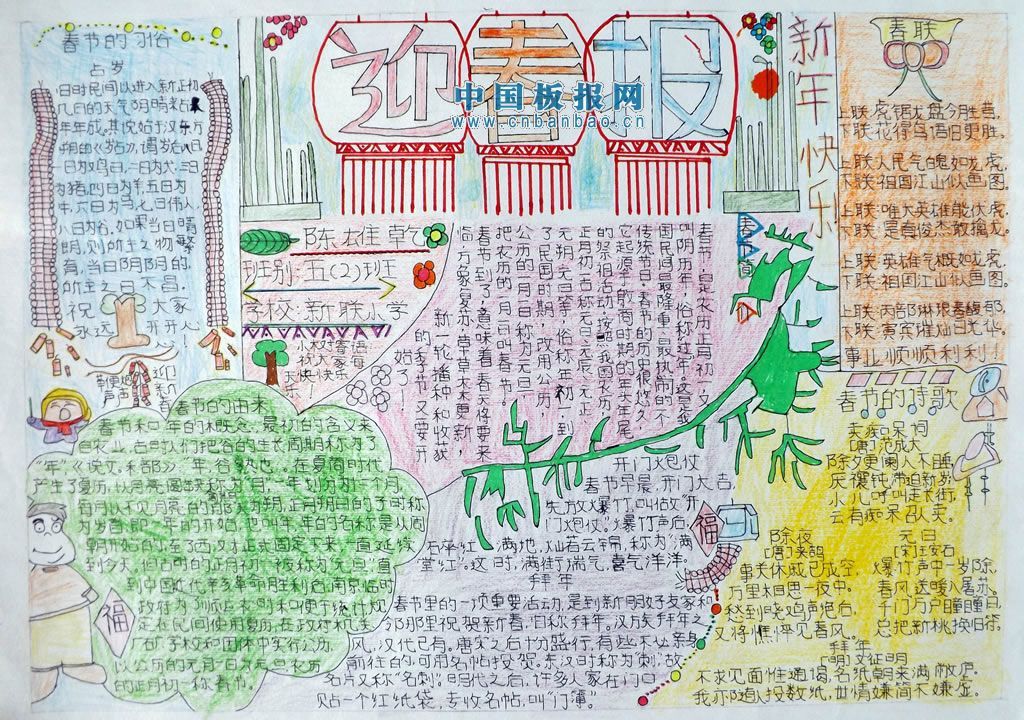 迎春报
中国板报网
www.cnbanbao.cn
新年快乐
春节的习俗
占岁
旧时民间以进入新正初
几日的天气阴晴来占
年年成。其说始于汉东方
朔的《岁占》，谓岁后八日
一日为鸡日，二日为犬，三日
为猪，四日为羊，五日为
牛，六日为马，七日为人，
八日为谷。如果当日晴
明，则所主之物繁
育，当日阴的，
所主之日不昌。
祝 大家
永远 开开心心！
陈雄乾
班别：五(2)班
学校：新联小学
春节，是农历正月初一，又
叫阴历年，俗称过年。这是我
国民间最隆重、最热闹的一个
传统节日。春节的历史很悠久，
它起源于殷商时期的年头年尾
的祭祖活动。按照我国农历，
正月初一古称元日、元辰、元正、
元朔、元旦等，俗称年初一，到
了民国时期，改用公历，
公历的一月一日称为元旦，
把农历的一月一日叫春节。
春节到了，意味着春天将要来
临，万象复苏草木更新，
新一轮播种和收获
季节又要开
始了。
春联
上联：虎踞龙盘今胜昔，
下联：花得鸟语旧更胜。
上联：人民气魄如龙虎，
下联：祖国江山似画图。
上联：唯大英雄能伏虎，
下联：是真俊杰敢擒龙。
上联：英雄气概如龙虎，
下联：祖国江山似画图。
事业顺顺利利！
春节的由来
春节和年的概念，最初的含义来
自农业，古时人们把谷的生长周期称为了
“年”，《说文。禾部》：“年，谷熟也”。在夏商时代
产生了夏历，以月亮圆缺
到今天。但古时的正月初一被称为“元旦”，直
到中国近代辛亥革命胜利后，南京临时
矿、学校和团体中实行公历，
以公历的元月一日为元旦，农历
的正月初一称春节。
福
开门炮仗
春节早晨，开门大吉，
先放爆竹，叫做“开
门炮仗”。爆竹声后，
碎红满地，灿若云锦，称为“满
堂红”。这时，满街瑞气，喜气洋洋。
拜年
春节里的一项重要活动，是到新朋好友家和
邻那里祝贺新春，旧称拜年。汉族拜年之
风，汉代已有。唐宋之后十分盛行，有些不必亲身
前往的，可用名帖投贺。东汉时称为“刺”，故
名片又称“名刺”。明代之后，许多人家在门口
贴一个红纸袋，专收名帖，叫“门簿”。
福
春节的诗歌
卖痴呆词
[唐]范成大
除夕更阑人不睡，
厌禳钝滞迫新岁；
小儿呼叫走长街，
云有痴呆召人卖。
除夜
[唐]来鹄
事关休戚已成空，
万里相思一夜中。
愁到晓鸡声绝后，
又将憔悴见春风。
元日
[宋]王安石
爆竹声中一岁除，
春风送暖入屠苏。
千门万户瞳瞳日，
总把新桃换旧符。
拜年
[明]文征明
不求见面惟通谒，名纸朝来满敝庐。
我亦随人投数纸，世情嫌简不嫌虚。